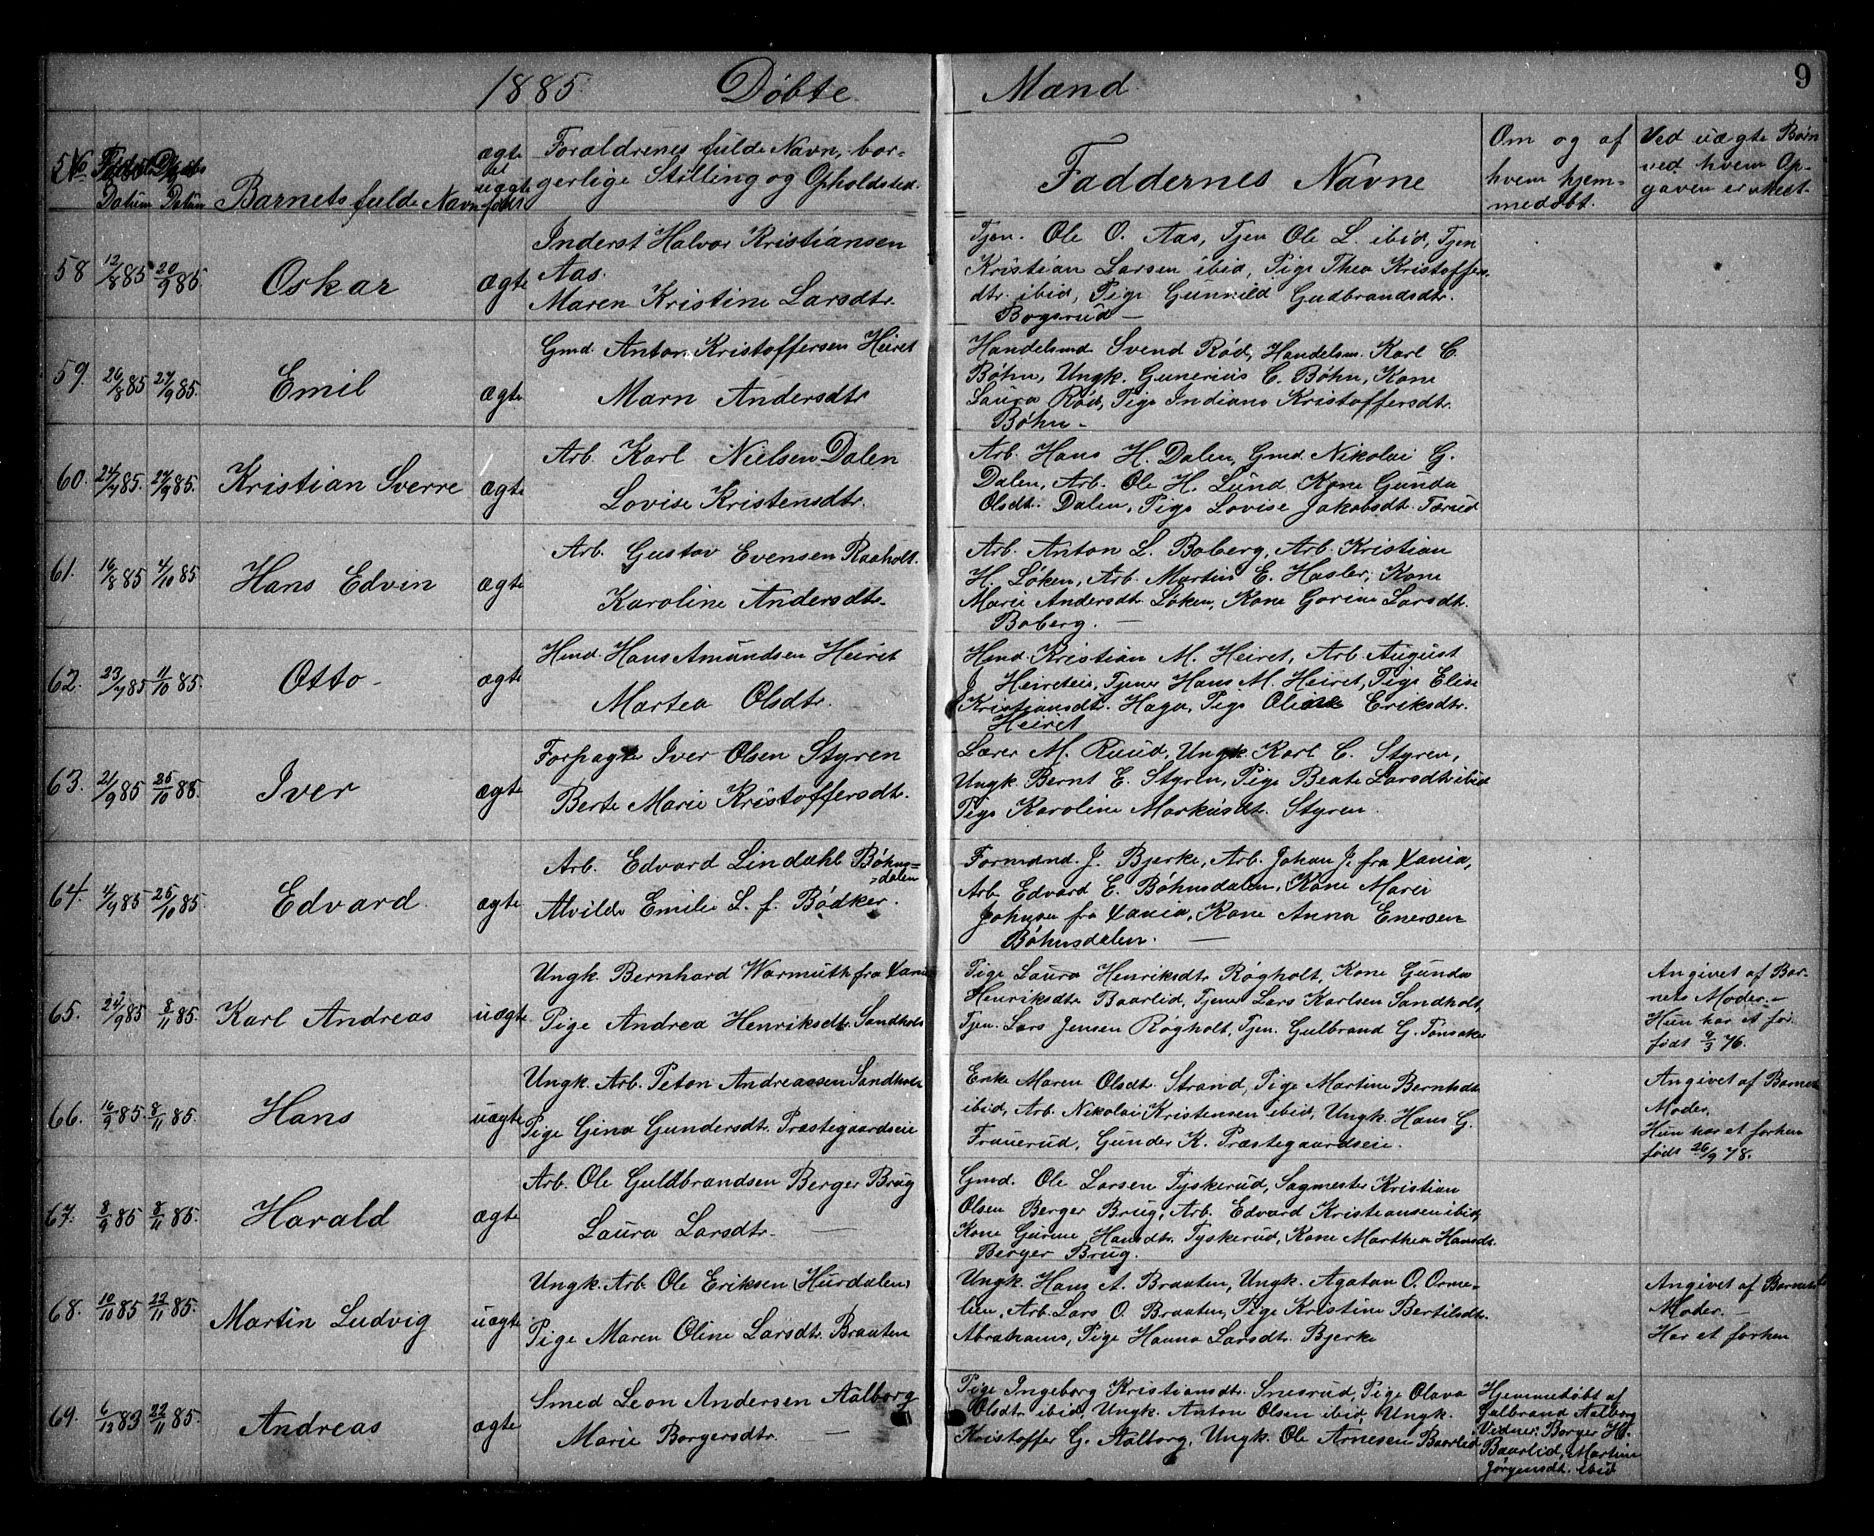 1885. Døbte Mænd 9
No Fødsels Datum Daabs Datum Barnets fulde Navn ægte el uægte født
Forældrenes fulde Navn, bor-
gerlige Stilling og Opholdsted.
Faddernes Navne
Om og af
hvem hjem-
medøbt.
Ved uægte Børn
ved hvem Op-
gaven er vkedt.
58 12/8 85 20/9 85. Oskar ægte
Inderst Halvor Kristiansen
Aas.
Maren Kristine Larsdtr.
Tjen. Ole O. Aas, Tjen Ole L. ibid, Tjen
Kristian Larsen ibid, Pige Thea Kristoffers
dtr. ibid, Pige Gunnild Gudbrandsdtr.
Bogsrud —
59. 26/8 85 27/9 85. Emil ægte
Gmd. Anton Kristoffersen Heiret
Marn Andersdtr
Handelsmd Svend Rød, Handelsm. Karl C.
Bøhn, Ungk. Gunerius C. Bøhn, Kone
Laura Rød, Pige Indiana Kristoffersdtr.
Bøhn -
60. 24/7 85. 27/9 85. Kristian Sverre ægte
Arb. Karl Nielsen Dalen
Lovise Kristensdtr.
Arb. Hans H. Dalen, Gmd. Nikolai G.
Dalen, Arb. Ole H. Lund, Kone Gunda
Olsdt. Dalen, Pige Lovise Jakobsdt. Tærud
61. 16/8 85 4/10 85 Hans Edvin ægte
Arb. Gustav Evensen Raaholt.
Karoline Andersdtr.
Arb. Anton L. Boberg, Arb. Kristian
H. Løken, Arb. Martin E. Hasler, Kone
Marie Andersdt. Løken, Kone Gorine Larsdt.
Boberg. —
62. 23/7 85 11/10 85. Otto - ægte
Hmd. Hans Amundsen Heiret
Martea Olsdtr.
Hmd. Kristian M. Heiret, Arb. August
J. Heireteie, Tjener Hans M. Heiret, Pige Elise
Kristiansdt. Haga, Pige Oline Eriksdtr.
Heiret
63. 21/9 85 25/10 85. Iver ægte
Forpagte Iver Olsen Styren
Berte Marie Kristoffersdt.
Lærer M. Ruud, Ungk Karl C. Styren,
Ungk Bernt E. Styren, Pige Beate Larsdtr ibid
Pige Karoline Markusdt. Styren.
64. 4/9 85 25/10 85. Edvard. ægte
Arb. Edvard Lindahl Bøhns=
=dalen
Alvilde Emilie L. f. Bødker.
Formand. J. Bjerke, Arb. Johan J. fra Xania,
Arb. Edvard E. Bøhnsdalen, Kone Marie
Johnsen fra Xania, Kone Anna Enersen
Bøhnsdalen. —
65. 24/9 85 8/11 85. Karl Andreas uægte
Ungk. Bernhard Warmuth fra Xania
Pige Andrea Henriksdtr. Sandholt
Pige Laura Henriksdtr Røgholt, Kone Gunda
Henriksdtr Baarlid, Tjener Lars Karlsen Sandholt,
Tjen. Lars Jensen Røgholt, Tjen. Gulbrand G. Tønsaker
Angivet af Bar-
nets Moder. -
Hun har et før
født 9/3 76.
66. 16/9 85. 8/11 85. Hans uægte
Ungk. Arb. Peton Andreassen Sandholt
Pige Gina Gundersdt. Præstegaardseie
Enke Maren Olsdt. Strand, Pige Martine Berntsdtr
ibid, Arb. Nikolai Kristensen ibid, Ungk. Hans G.
Trauerud, Gunder K. Præstegaardseie.
Angivet af Barnets
Moder.
Hun har et forhen
føds 26/9 78.
67. 8/9 85 8/11 85. Harald ægte
Arb. Ole Guldbrandsen Berger Brug
Laura Larsdtr. —
Gmd. Ole Larsen Tyskerud, Sagmester Kristian
Olsen Berger Brug, Arb. Edvard Kristiansen ibid,
Kone Gurine Hansdtr. Tyskerud, Kone Marthea Hansdt.
Berger Brug.
68. 10/10 85 22/11 85. Martin Ludvig uægte
Ungk. Arb. Ole Eriksen (Hurdalen)
Pige Maren Oline Larsdtr. Braaten
Ungk. Hans A. Braaten, Ungk. Agaton O. Orme-
lien, Arb. Lars O. Braaten, Pige Kristine Bertilsdtr.
Abrahams, Pige Hanna Larsdtr. Bjerke
Angivet af Barnets
Moder. —
Har et forhen
69. 6/12 83 22/11 85. Andreas ægte
Smed Leon Andersen Aalborg
Marie Borgersdtr. —
Pige Ingeborg Kristiansdt. Snesrud, Pige Olava
Olsdtr ibid, Ungk. Anton Olsen ibid, Ungk.
Kristoffer G. Aalborg, Ungk. Ole Arnesen Baarlid
Hjemmedøbt af
Gulbrand Aalborg
Vidner: Borger H.
Baarlid, Martine
Jørgensdt. ibid